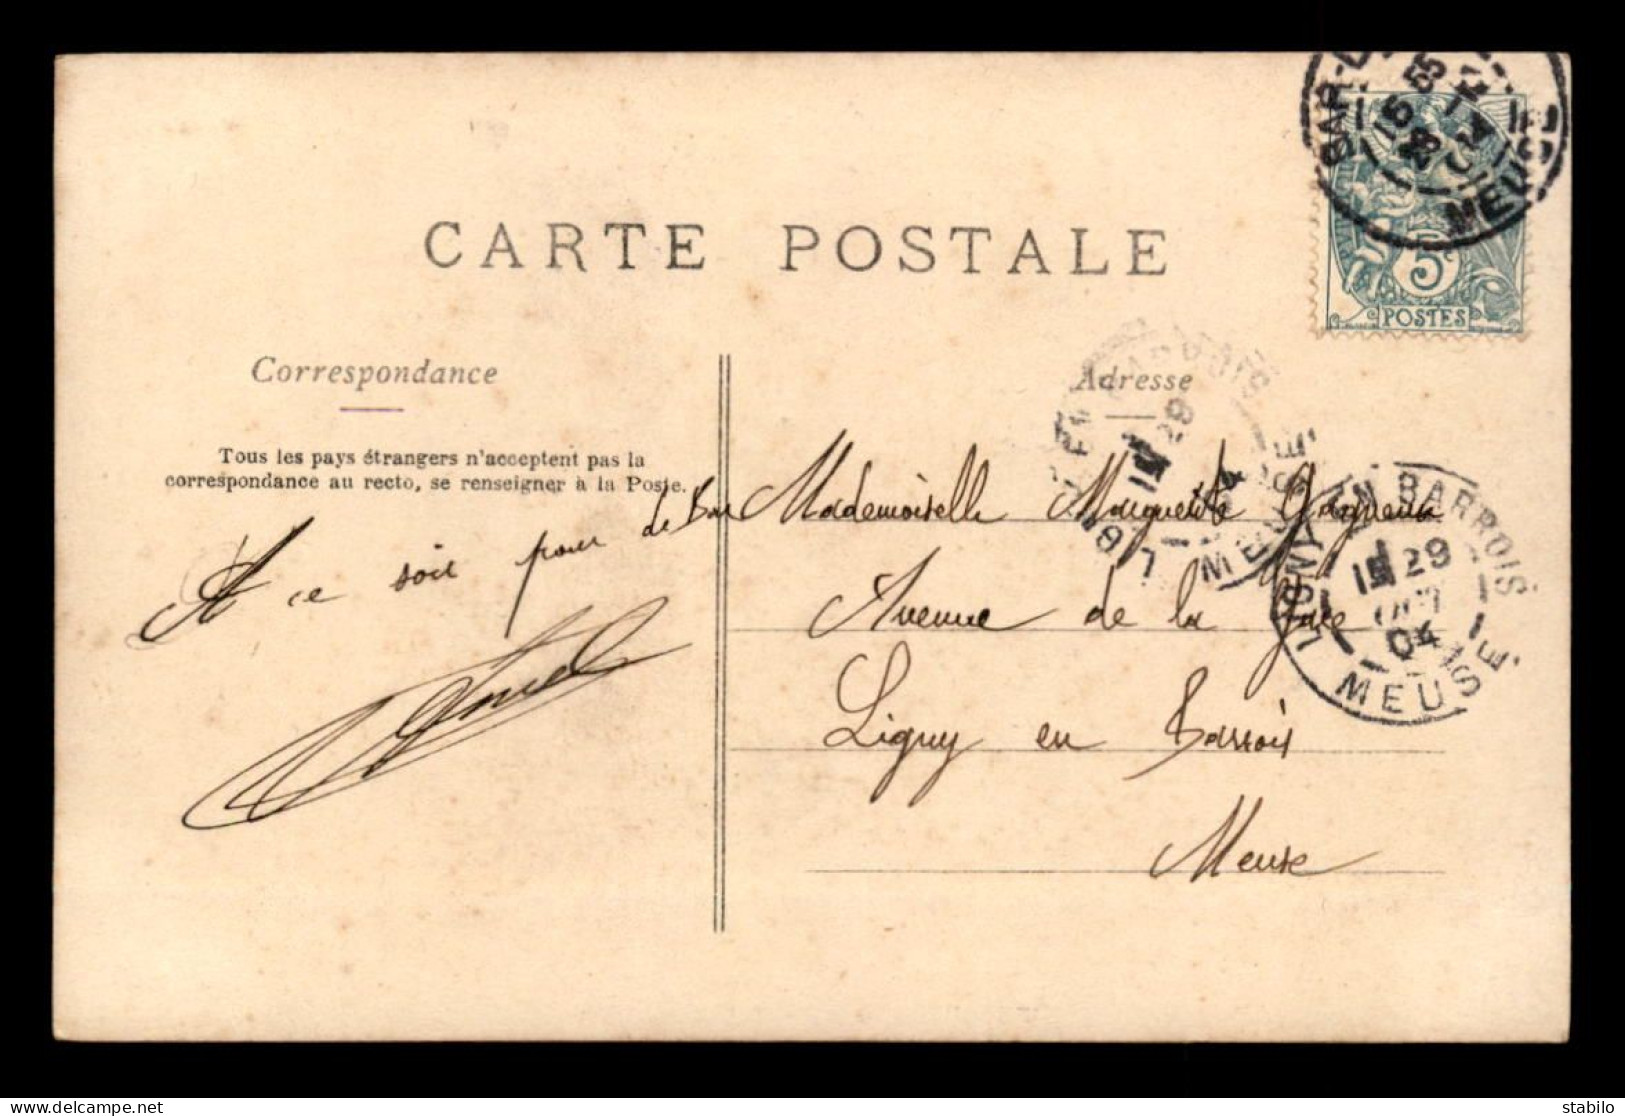 CARTE POSTALE
Correspondance
Tous les pays étrangers n'acceptent pas la
correspondance au recto, se renseigner à la Poste.
A ce soir pour de Bar
Adresse
Mademoiselle Marguerite
Avenue de la Gare
Ligny en Barrois
Meuse
5
POSTES
BAR-L
MEUSE
LIGNY EN BARROIS
29
04
MEUSE
LIGNY EN BARROIS
29
OCT
04
MEUSE
www.delcampe.net
stabilo